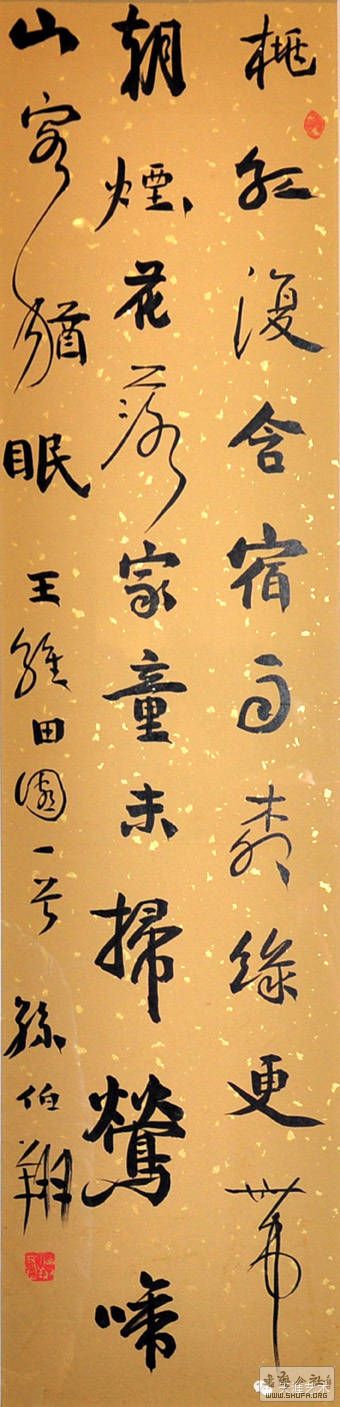 桃紅復含宿雨柳綠更帶
朝煙花落家童未掃鶯啼
山客猶眠
王維田園一首 孫伯翔
WWW.SHUFA.ORG